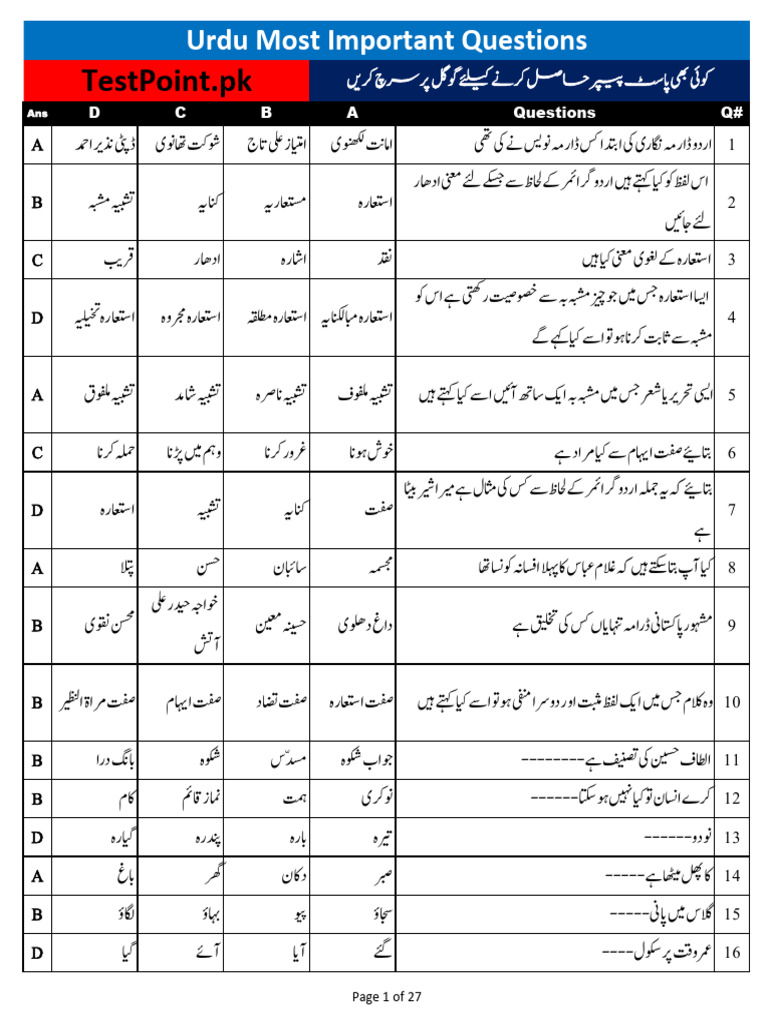 Urdu Most Important Questions
TestPoint.pk کوئی بھی پاسٹ پیپر حاصل کرنے کیلئے گوگل پر سرچ کریں
Q# Questions A B C D Ans
1 اردو ڈارمہ نگاری کی ابتدا کس ڈارمہ نویس نے کی تھی امانت لکھنوی امتیاز علی تاج شوکت تھانوی ڈپٹی نذیر احمد A
2 اس لفظ کو کیا کہتے ہیں اردو گرائمر کے لحاظ سے جسکے لئے معنی ادھار
لئے جائیں استعارہ مستعاریہ کنایہ تشبیہ مشبہ B
3 استعارہ کے لغوی معنی کیا ہیں نقد اشارہ ادھار قریب C
4 ایسا استعارہ جس میں جو چیز مشبہ بہ سے خصوصیت رکھتی ہے اس کو
مشبہ سے ثابت کرنا ہو تو اسے کیا کہے گے استعارہ مبالکنایہ استعارہ مطلقہ استعارہ مجروہ استعارہ تخیلیہ D
5 ایسی تحریر یا شعر جس میں مشبہ بہ ایک ساتھ آئیں اسے کیا کہتے ہیں تشبیہ ملفوف تشبیہ ناصرہ تشبیہ شامد تشبیہ ملفوق A
6 بتایئے صفت ایہام سے کیا مراد ہے خوش ہونا غرور کرنا وہم میں پڑنا حملہ کرنا C
7 بتایئے کہ یہ جملہ اردو گرائمر کے لحاظ سے کس کی مثال ہے میرا شیر بیٹا
ہے صفت کنایہ تشبیہ استعارہ D
8 کیا آپ بتا سکتے ہیں کہ غلام عباس کا پہلا افسانہ کونسا تھا مجسمہ سائبان حسن پتلا A
9 مشہور پاکستانی ڈرامہ تنہایاں کس کی تخلیق ہے داغ دھلوی حسینہ معین خواجہ حیدر علی
آتش محسن نقوی B
10 وہ کلام جس میں ایک لفظ مثبت اور دوسرا منفی ہو تو اسے کیا کہتے ہیں صفت استعارہ صفت تضاد صفت ایہام صفت مراۃ النظیر B
11 الطاف حسین کی تصنیف ہے-------- جواب شکوہ مسدّس شکوہ بانگ درا B
12 کرے انسان تو کیا نہیں ہو سکتا------ نوکری ہمت نماز قائم کام B
13 نو دو------ تیرہ بارہ پندرہ گیارہ D
14 کا پھل میٹھا ہے----- صبر دکان گھر باغ A
15 گلاس میں پانی----- سجاؤ پیو بہاؤ لگاؤ B
16 عمر وقت پر سکول---- گئے آیا آئے گیا D
Page 1 of 27